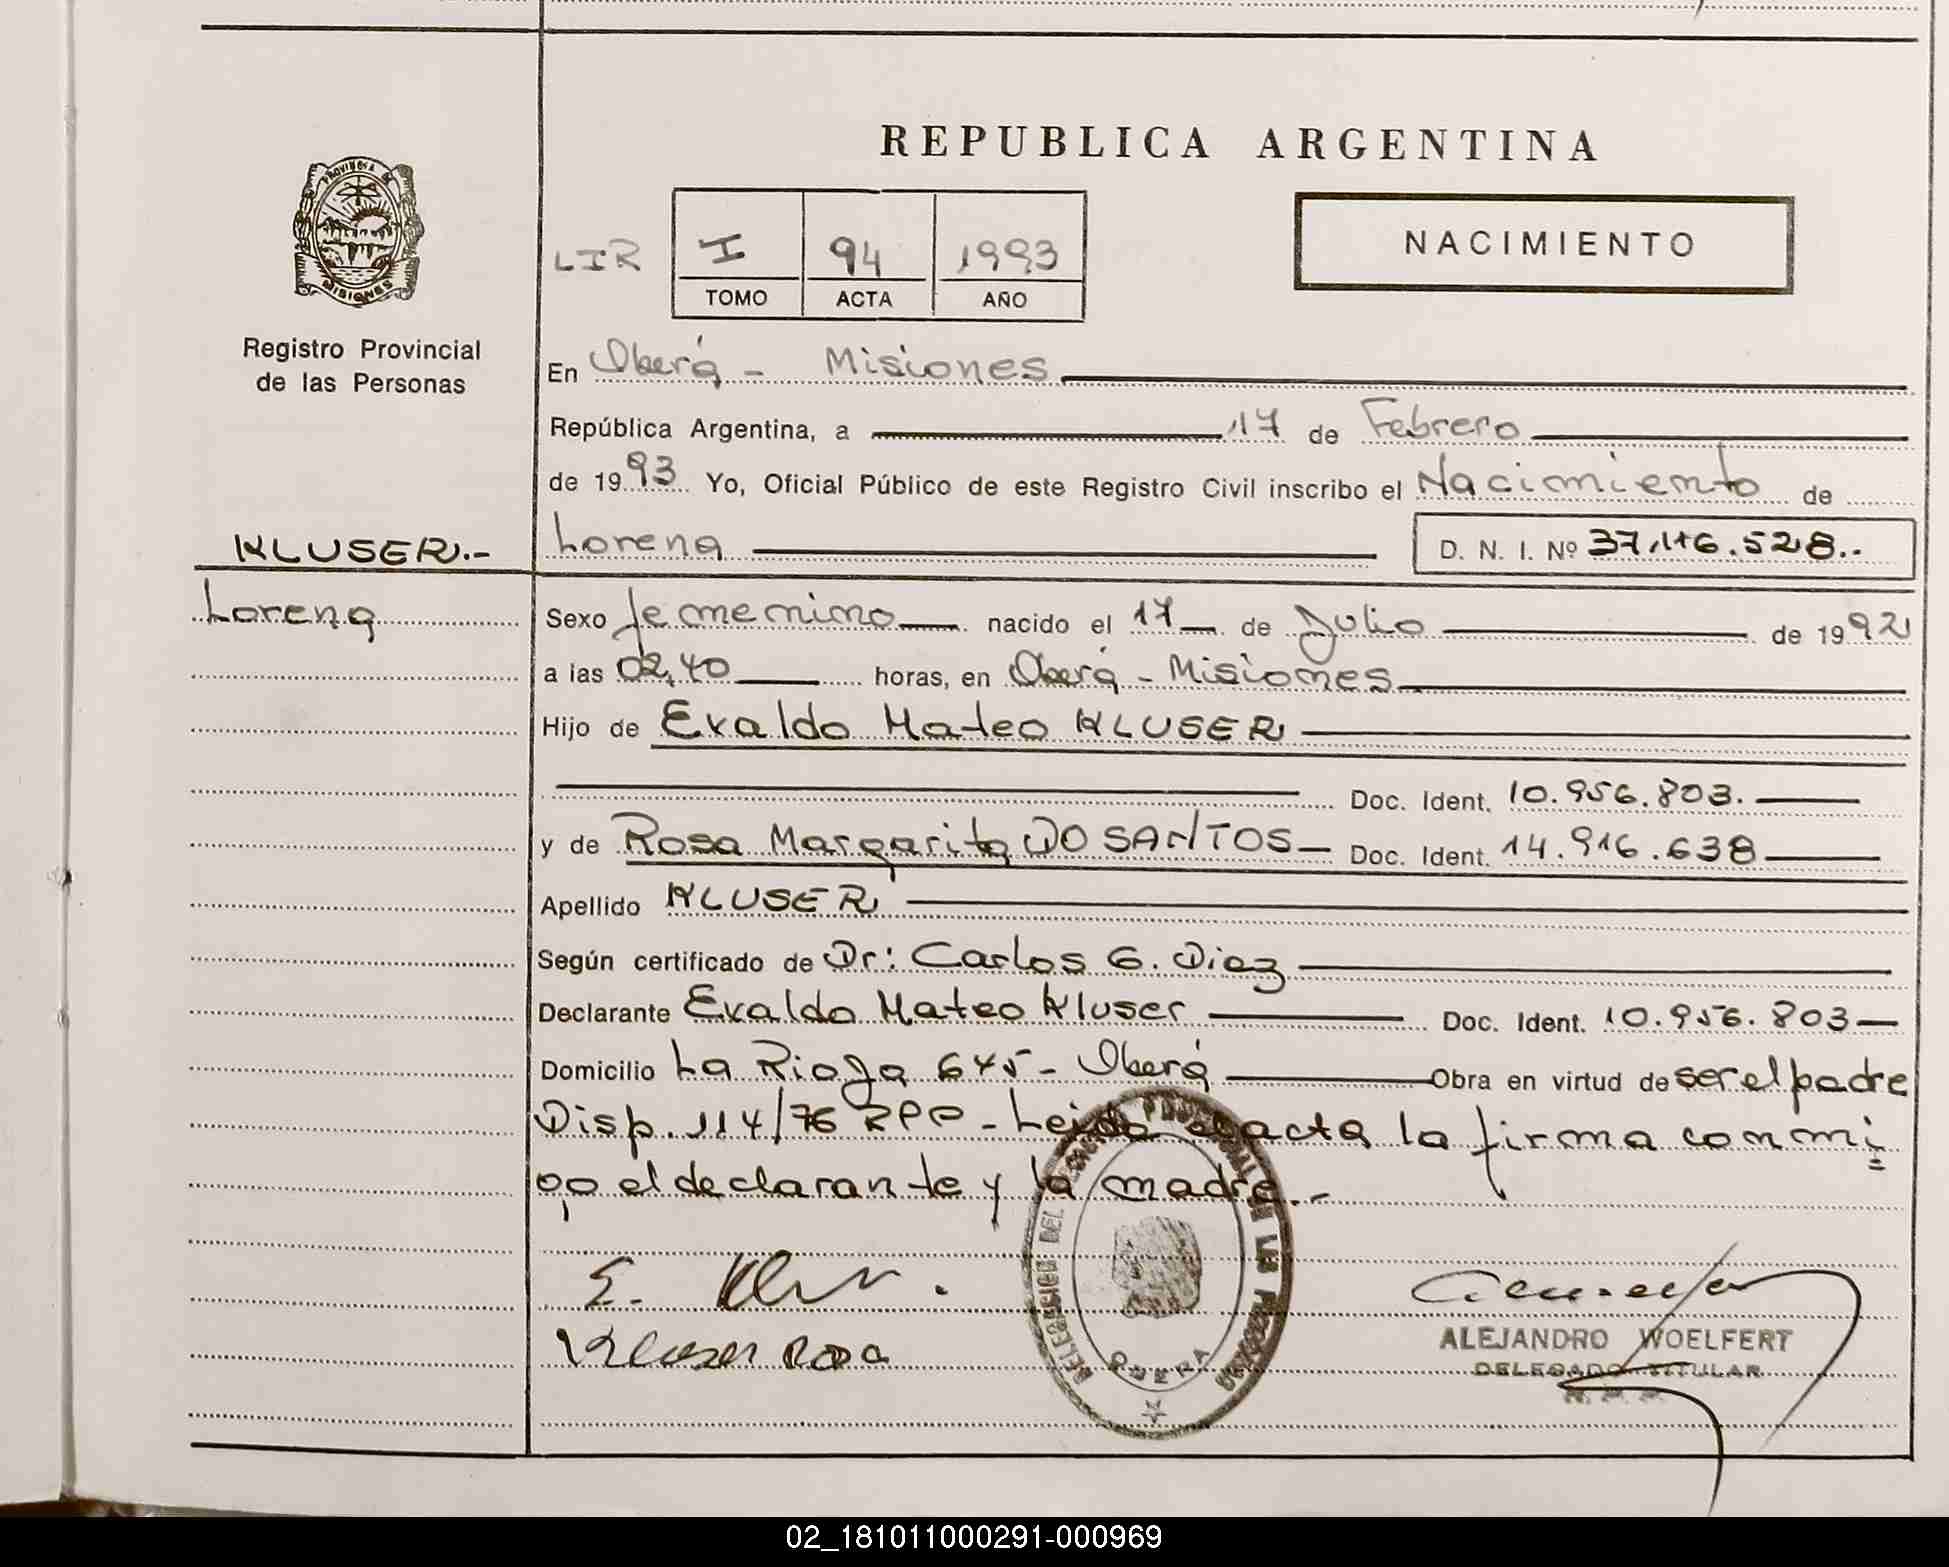 REPUBLICA ARGENTINA
PROVINCIA DE
MISIONES
Registro Provincial
de las Personas
LIR I 94 1993
TOMO ACTA AÑO
NACIMIENTO
En Oberá - Misiones
República Argentina, a 17 de Febrero
de 1993 Yo, Oficial Público de este Registro Civil inscribo el Nacimiento de
KLUSER.- Lorena D. N. I. Nº 37.116.528..
Lorena Sexo femenino nacido el 17 de Julio de 1992
a las 02,40 horas, en Oberá - Misiones
Hijo de Evaldo Mateo KLUSER
Doc. Ident. 10.956.803.
y de Rosa Margarita DO SANTOS Doc. Ident. 14.916.638
Apellido KLUSER
Según certificado de Dr: Carlos G. Diez
Declarante Evaldo Mateo Kluser Doc. Ident. 10.956.803
Domicilio La Rioja 645 - Oberá Obra en virtud de ser el padre
Disp. 114/76 RPP - Leida el acta la firma con mi
go el declarante y la madre.-
E. Kluser
Kluser Rosa
DELEGACION DEL REGISTRO PROVINCIAL DE LAS PERSONAS
OBERA
ALEJANDRO WOELFERT
DELEGADO TITULAR
R. P. P.
02_181011000291-000969